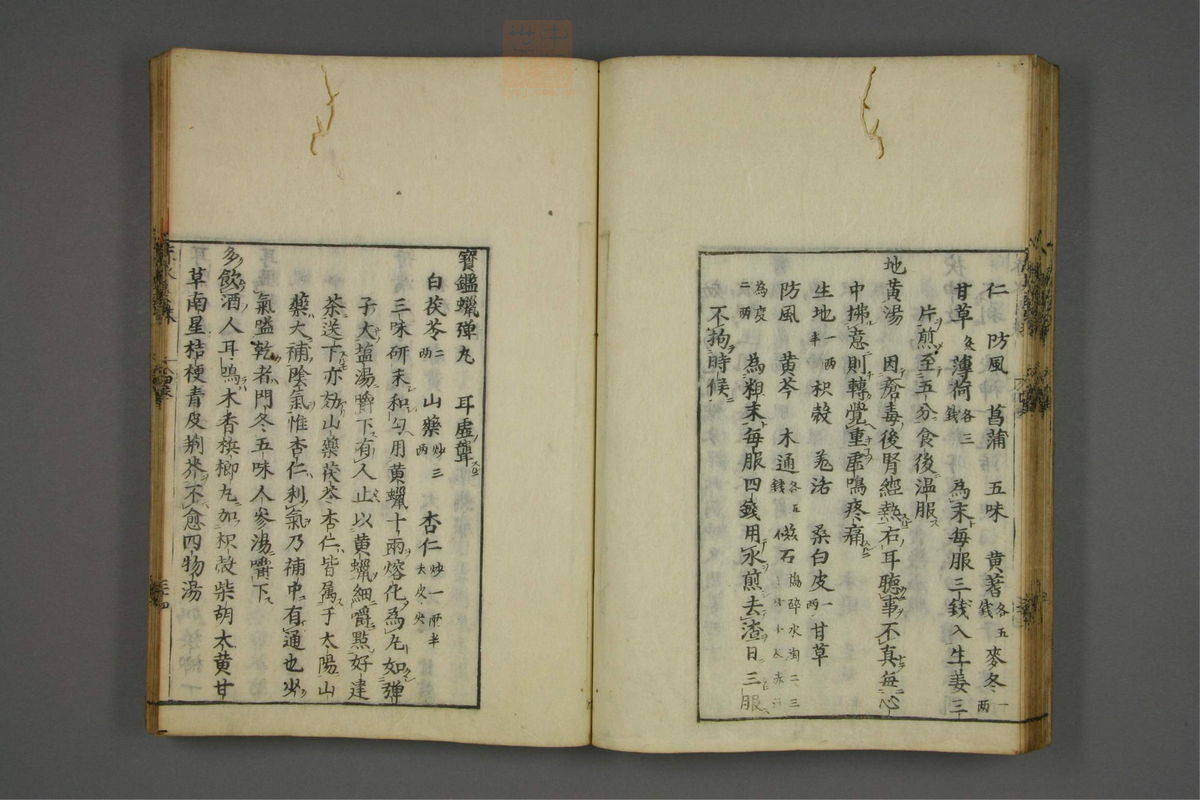 仁 防風 菖蒲 五味 黄蓍各五錢 麥冬一兩
甘草炙 薄荷各三錢 為末每服三錢入生姜三
片煎至五分食後温服
地黄湯 因瘡毒後腎經熱右耳聽事不真每心
中拂意則轉覺重虚鳴疼痛
生地一兩半 枳殼 羗活 桑白皮一兩 甘草
防風 黄芩 木通各五錢 磁石
為度二兩 為粗末每服四錢用水煎去渣日三服
不拘時候
寳鑑蠟弹丸 耳虚聾
白茯苓二兩 山藥炒三兩 杏仁炒一兩半去皮尖
三味研末和匀用黄蠟十兩熔化為丸如弹
子大塩湯嚼下有人止以黄蠟細嚼點好建
茶送下亦効山藥茯苓杏仁皆属于太陽山
藥大補陰氣惟杏仁利氣乃補中有通也必
氣嗌乾者門冬五味人參湯嚼下
多飲酒人耳鳴木香檳榔丸加枳殼柴胡大黄甘
草南星桔梗青皮荆芥不愈四物湯